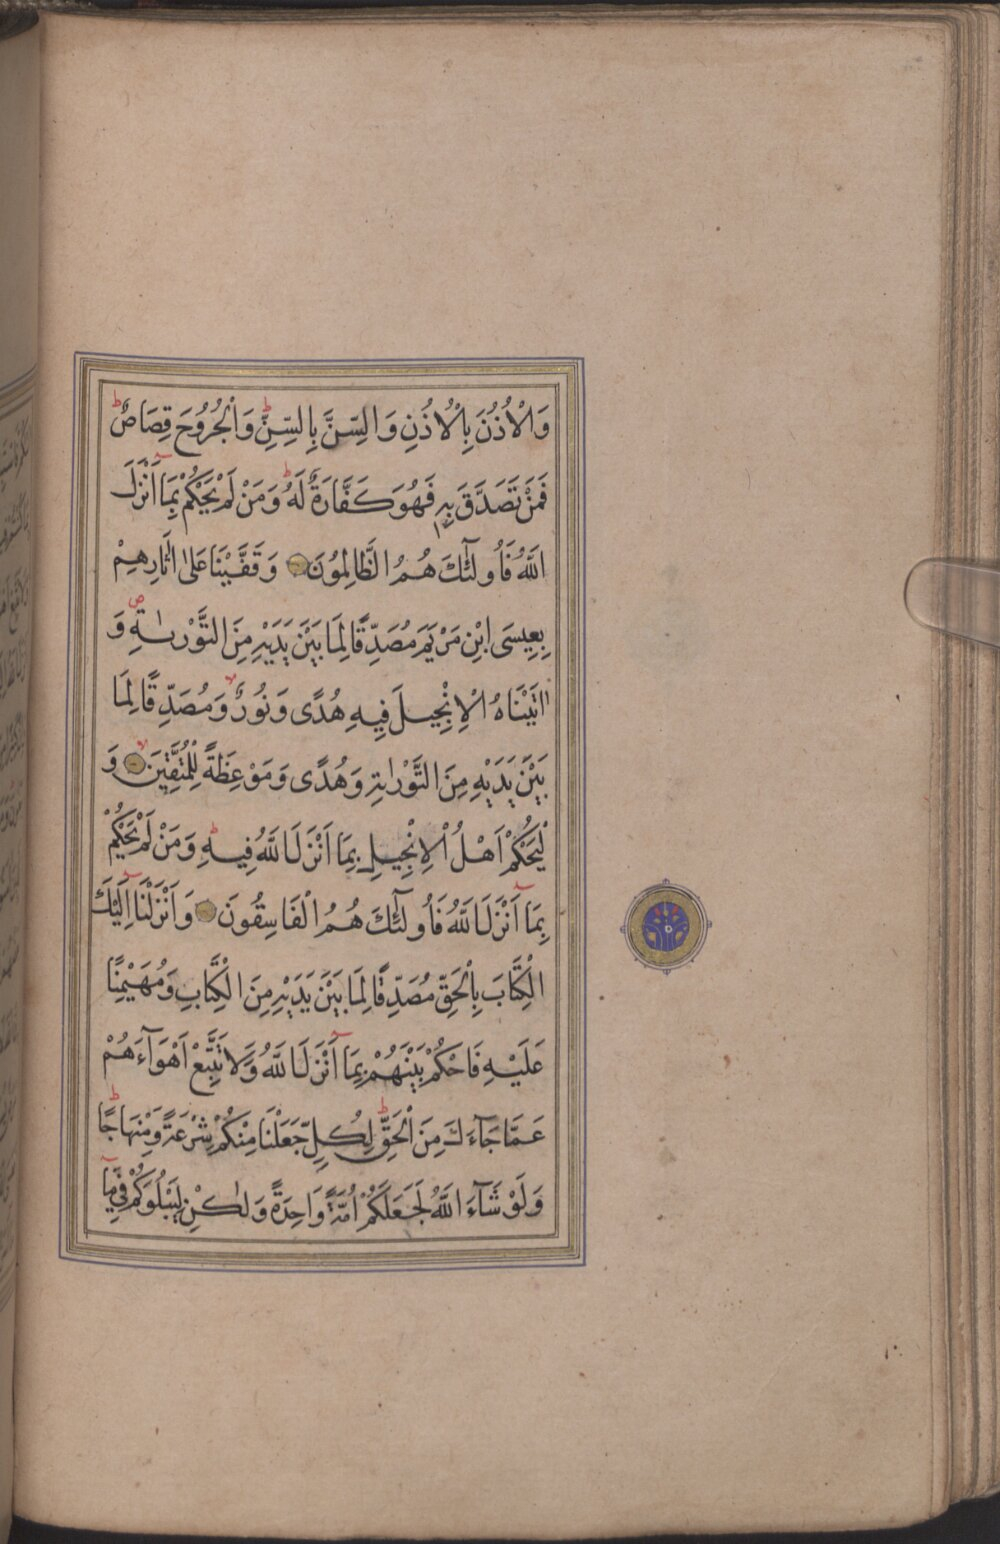 وَالْاُذُنَ بِالْاُذُنِ وَالسِّنَّ بِالسِّنِّ وَالْجُرُوحَ قِصَاصٌ ط
فَمَنْ تَصَدَّقَ بِهِ فَهُوَ كَفَّارَةٌ لَهُ ط وَمَنْ لَمْ يَحْكُمْ بِمَا اَنْزَلَ
اللّٰهُ فَاُولٰٓئِكَ هُمُ الظَّالِمُونَ وَقَفَّيْنَا عَلٰى اٰثَارِهِمْ
بِعِيسَى ابْنِ مَرْيَمَ مُصَدِّقًا لِمَا بَيْنَ يَدَيْهِ مِنَ التَّوْرٰىةِ ص وَ
اٰتَيْنَاهُ الْاِنْجِيلَ فِيهِ هُدًى وَنُورٌ لا وَمُصَدِّقًا لِمَا
بَيْنَ يَدَيْهِ مِنَ التَّوْرٰاتِ وَهُدًى وَمَوْعِظَةً لِلْمُتَّقِينَ لا وَ
لْيَحْكُمْ اَهْلُ الْاِنْجِيلِ بِمَا اَنْزَلَ اللّٰهُ فِيهِ ط وَمَنْ لَمْ يَحْكُمْ
بِمَآ اَنْزَلَ اللّٰهُ فَاُولٰٓئِكَ هُمُ الْفَاسِقُونَ وَاَنْزَلْنَآ اِلَيْكَ
الْكِتَابَ بِالْحَقِّ مُصَدِّقًا لِمَا بَيْنَ يَدَيْهِ مِنَ الْكِتَابِ وَمُهَيْمِنًا
عَلَيْهِ فَاحْكُمْ بَيْنَهُمْ بِمَآ اَنْزَلَ اللّٰهُ وَلَا تَتَّبِعْ اَهْوَآءَهُمْ
عَمَّا جَآءَكَ مِنَ الْحَقِّ ط لِكُلٍّ جَعَلْنَا مِنْكُمْ شِرْعَةً وَمِنْهَاجًا ط
وَلَوْ شَآءَ اللّٰهُ لَجَعَلَكُمْ اُمَّةً وَاحِدَةً وَلٰكِنْ لِيَبْلُوَكُمْ فِي مَآ